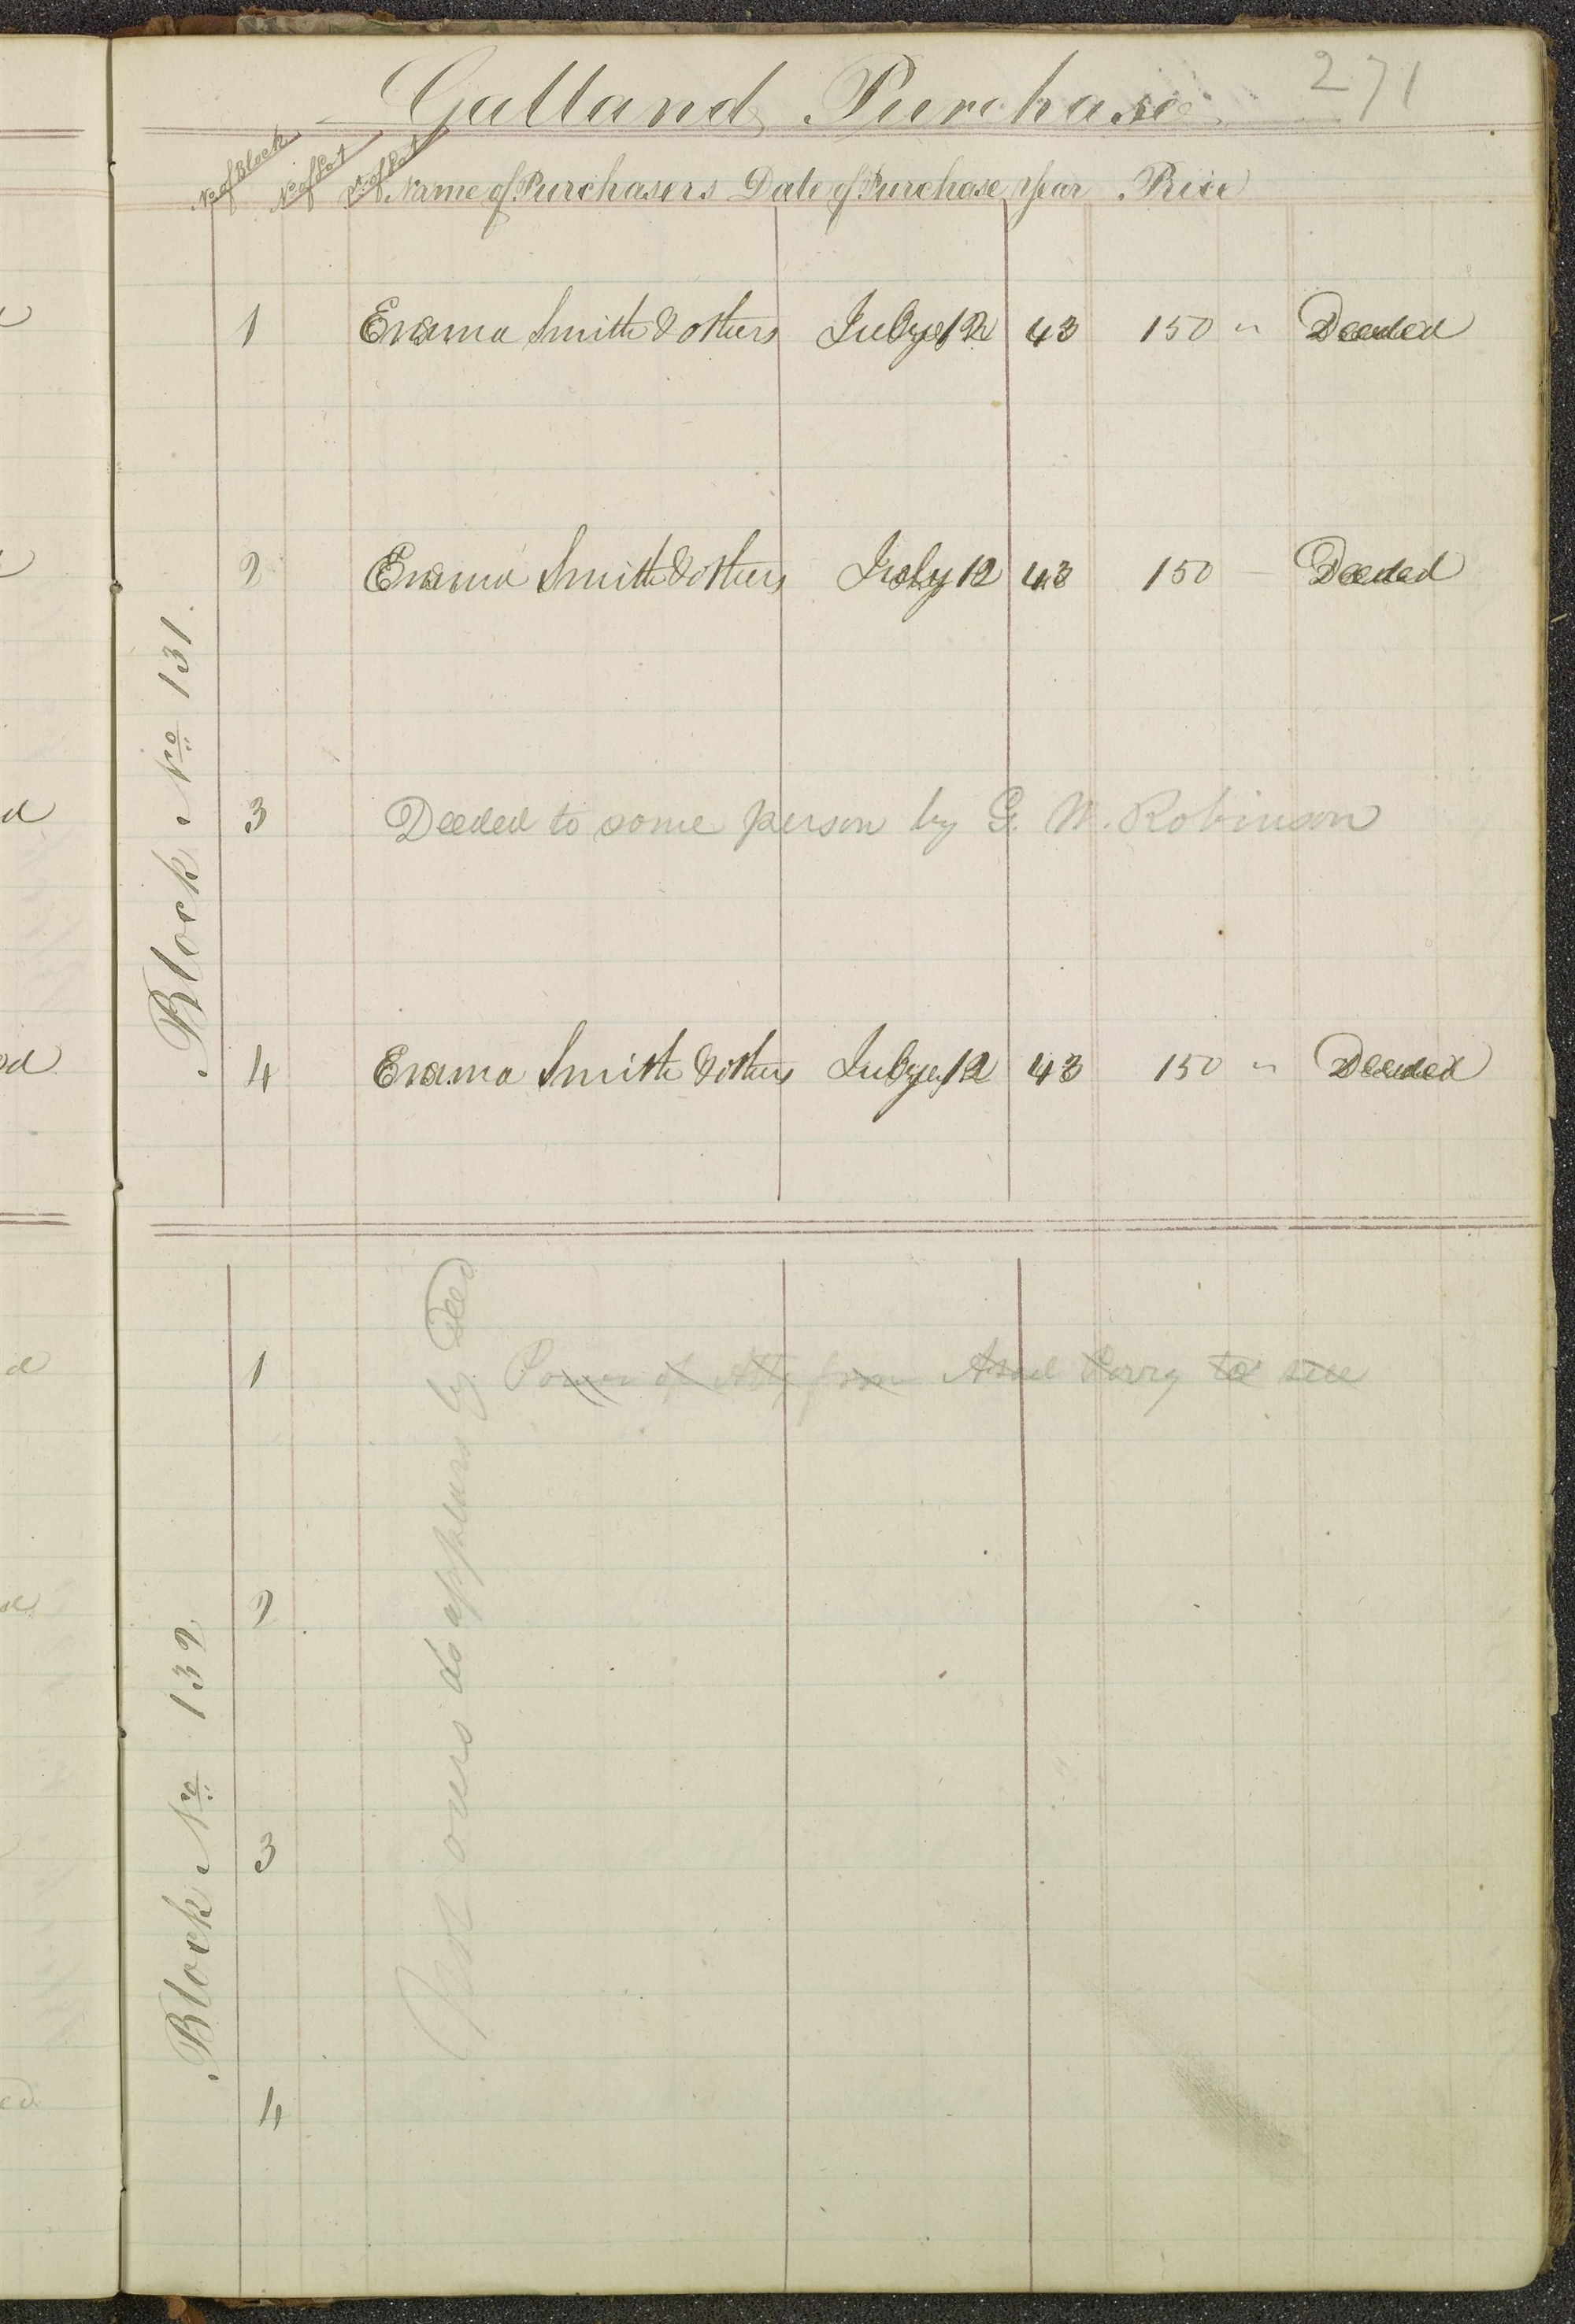 Galland Purchase 271
No of Block No of Lot No of Lot Name of Purchasers Date of Purchase Year Price
1 Emma Smith & others July 12 43 150 " Deeded
2 Emma Smith & others July 12 43 150 — Deeded
Block No 131.
3 Deeded to some person by G. W. Robinson
4 Emma Smith & others July 12 43 150 " Deeded
1 Power of Atty from Asael Perry to sell
Not ours as appears by Deed
2
Block No 132
3
4